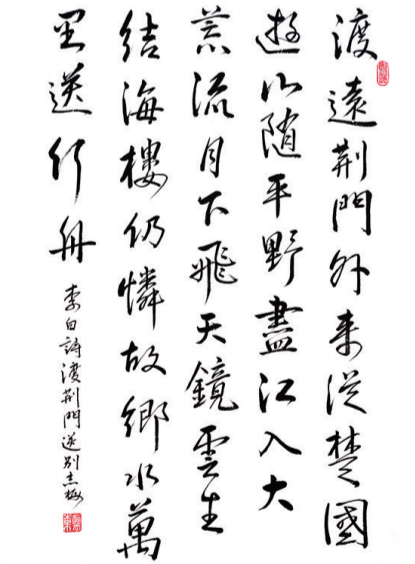 渡遠荆門外来從楚國
遊山随平野盡江入大
荒流月下飛天鏡雲生
結海樓仍憐故鄉水萬
里送行舟
李白詩渡荆門送別志梅